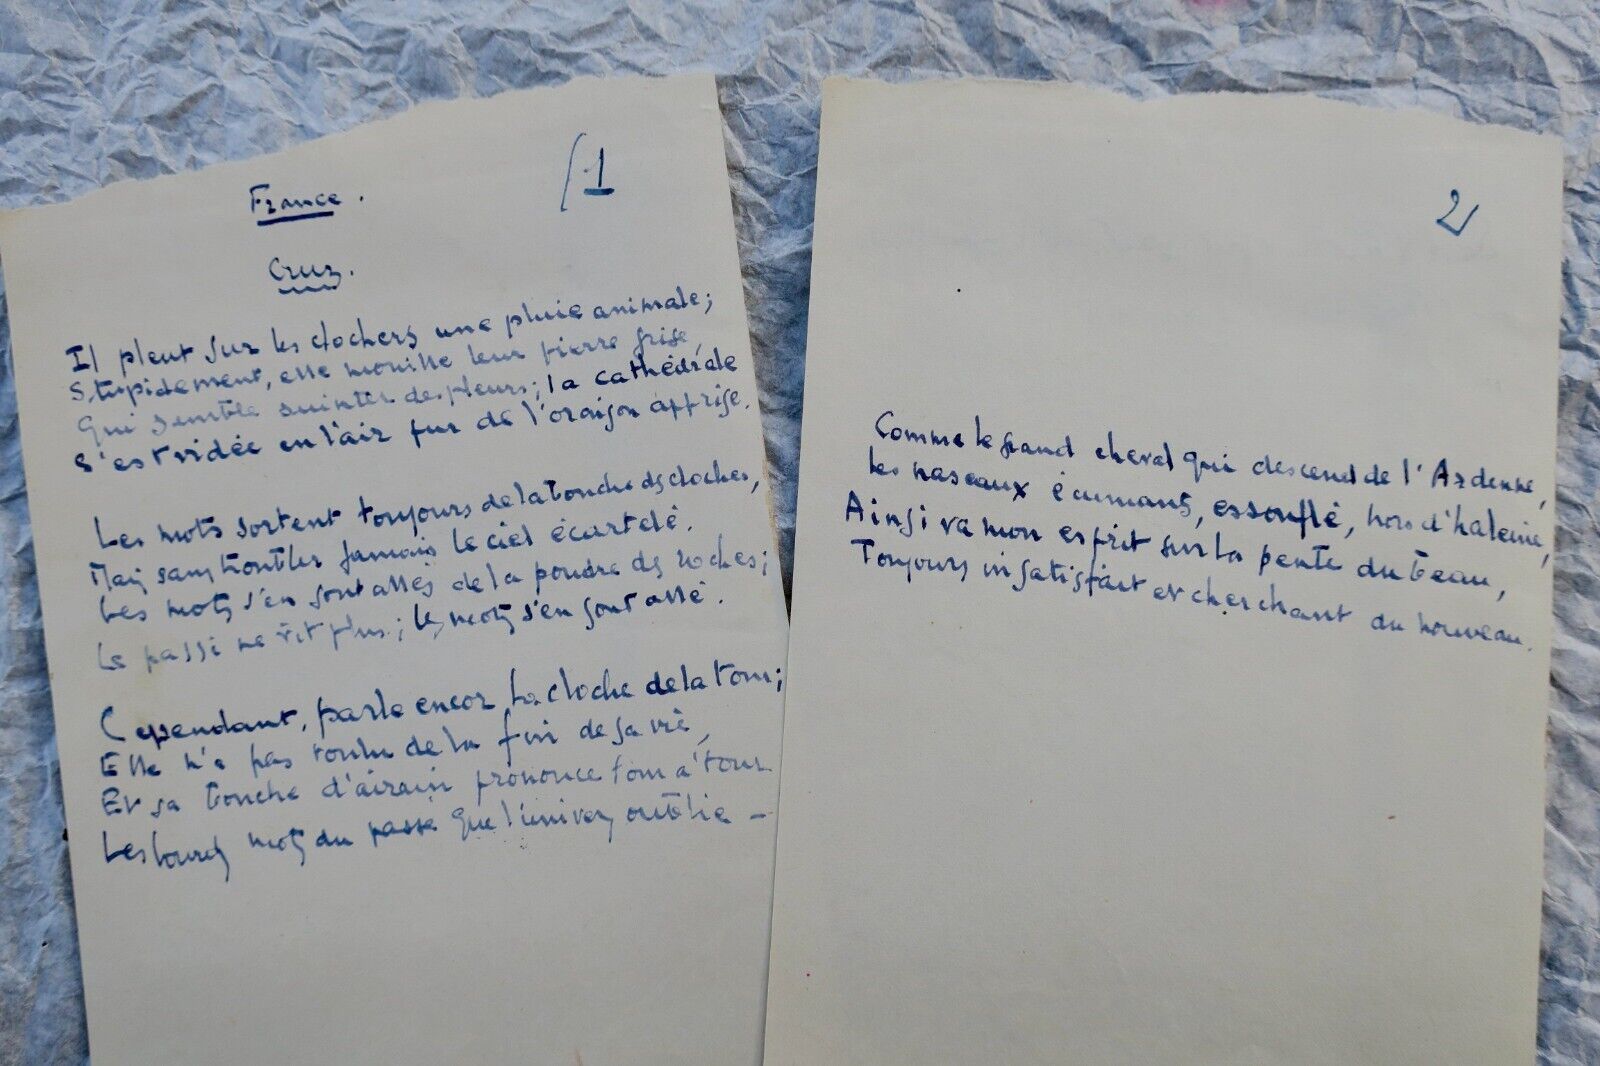 France.
1
Cruz.
Il pleut sur les clochers une pluie animale;
Stupidement, elle mouille leur pierre grise,
Qui semble suinter des pleurs; la cathédrale
S'est vidée en l'air pur de l'oraison apprise.
Les mots sortent toujours de la bouche des cloches,
Mais sans troubler jamais le ciel écartelé.
Les mots s'en sont allés de la poudre des roches;
Le passé ne vit plus; les mots s'en sont allé.
Cependant, parle encor la cloche de la tour;
Elle n'a pas voulu de la fin de sa vie,
Et sa bouche d'airain prononce tour à tour
Les lourds mots du passé que l'univers oublie –
2
Comme le grand cheval qui descend de l'Ardenne,
les naseaux écumants, essouflé, hors d'haleine,
Ainsi va mon esprit sur la pente du beau,
Toujours insatisfait et cherchant du nouveau.